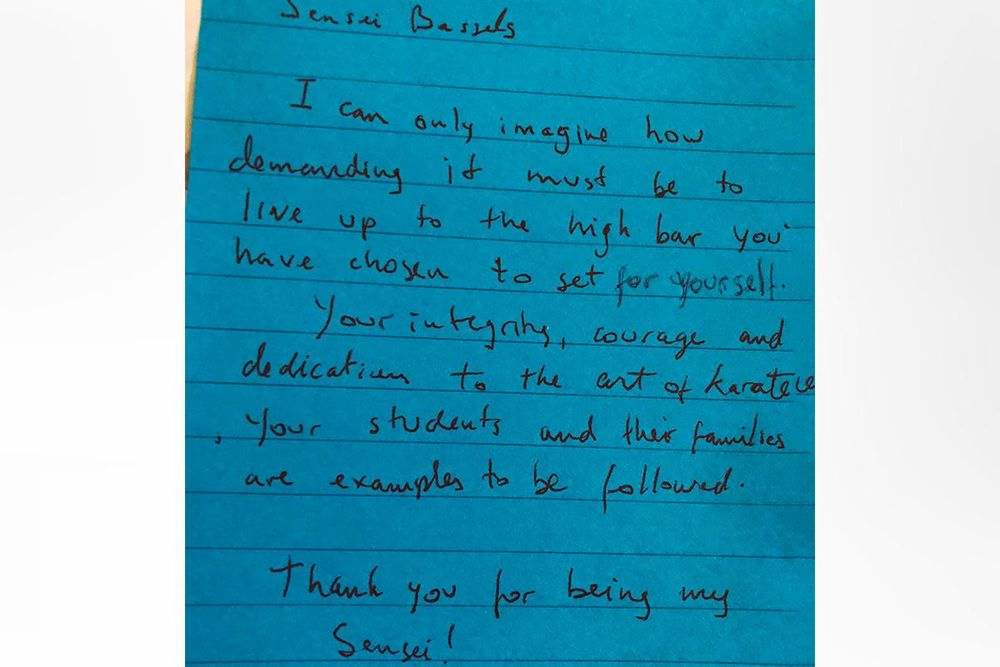 Sensei Bassels
I can only imagine how
demanding it must be to
live up to the high bar you
have chosen to set for yourself.
Your integrity, courage and
dedication to the art of karate
, your students and their families
are examples to be followed.
Thank you for being my
Sensei!